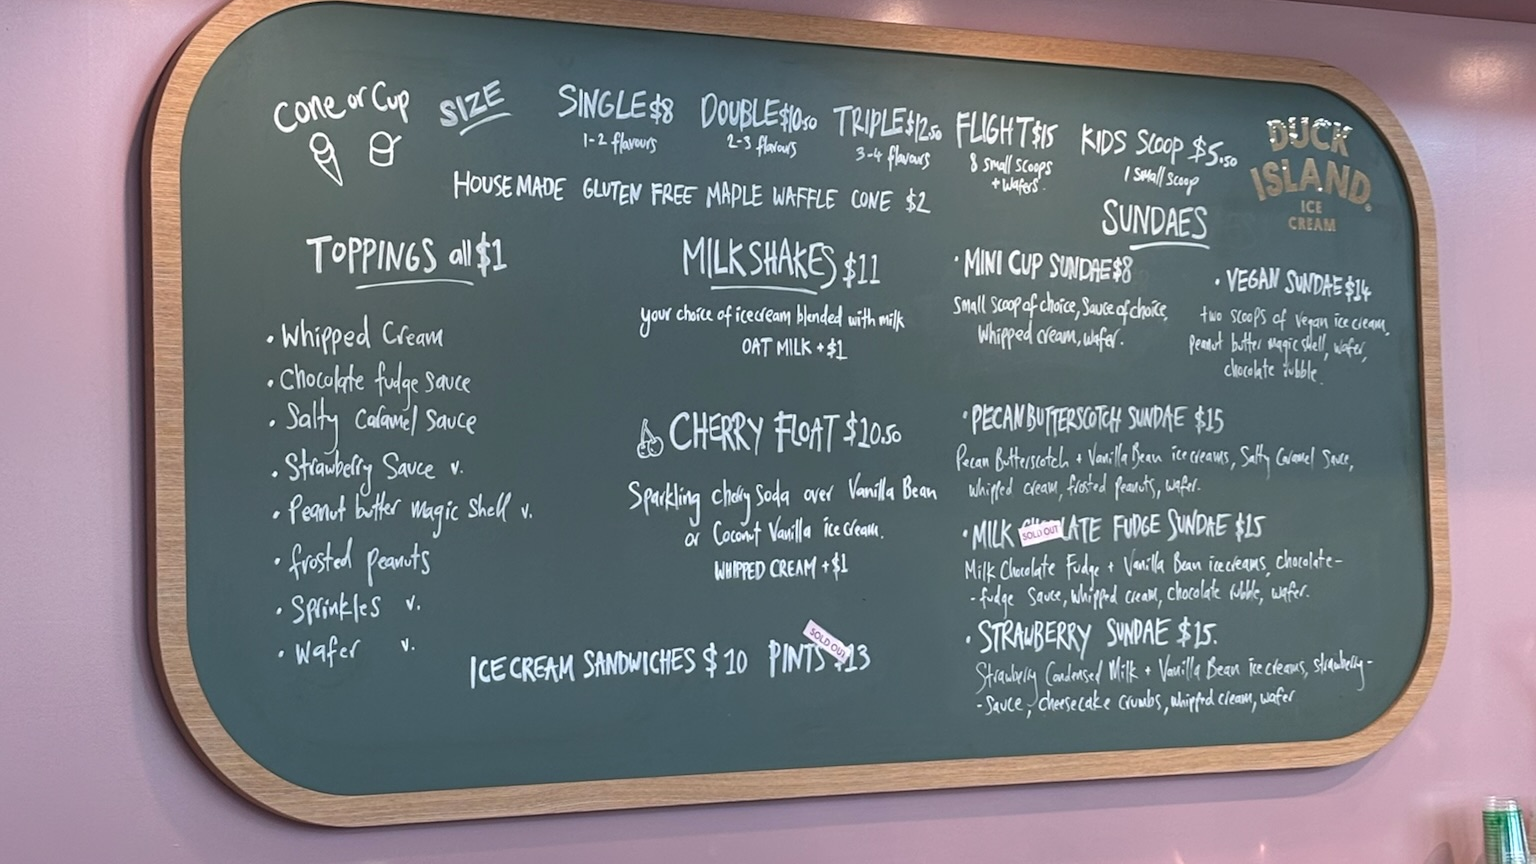 Cone or Cup
SIZE
SINGLE $8
1-2 flavours
DOUBLE $10.50
2-3 flavours
TRIPLE $12.50
3-4 flavours
FLIGHT $15
8 small scoops
+ wafers.
KIDS SCOOP $5.50
1 small scoop
DUCK
ISLAND®
ICE
CREAM
HOUSEMADE GLUTEN FREE MAPLE WAFFLE CONE $2
TOPPINGS all $1
• Whipped Cream
• Chocolate fudge sauce
• Salty Caramel Sauce
• Strawberry Sauce v.
• Peanut butter magic shell v.
• frosted peanuts
• Sprinkles v.
• wafer v.
MILKSHAKES $11
your choice of icecream blended with milk
OAT MILK + $1
CHERRY FLOAT $10.50
Sparkling cherry soda over Vanilla Bean
or Coconut Vanilla ice cream.
WHIPPED CREAM + $1
ICE CREAM SANDWICHES $10 PINTS $13
SOLD OUT
SUNDAES
• MINI CUP SUNDAE $8
Small scoop of choice, Sauce of choice,
Whipped cream, wafer.
• VEGAN SUNDAE $14
two scoops of vegan ice cream,
peanut butter magic shell, wafer,
chocolate rubble.
• PECAN BUTTERSCOTCH SUNDAE $15
Pecan Butterscotch + Vanilla Bean ice creams, Salty Caramel Sauce,
whipped cream, frosted peanuts, wafer.
• MILK LATE FUDGE SUNDAE $15
SOLD OUT
Milk Chocolate Fudge + Vanilla Bean icecreams, chocolate-
- fudge sauce, whipped cream, chocolate rubble, wafer.
• STRAWBERRY SUNDAE $15.
Strawberry Condensed Milk + Vanilla Bean ice creams, strawberry-
- sauce, cheesecake crumbs, whipped cream, wafer